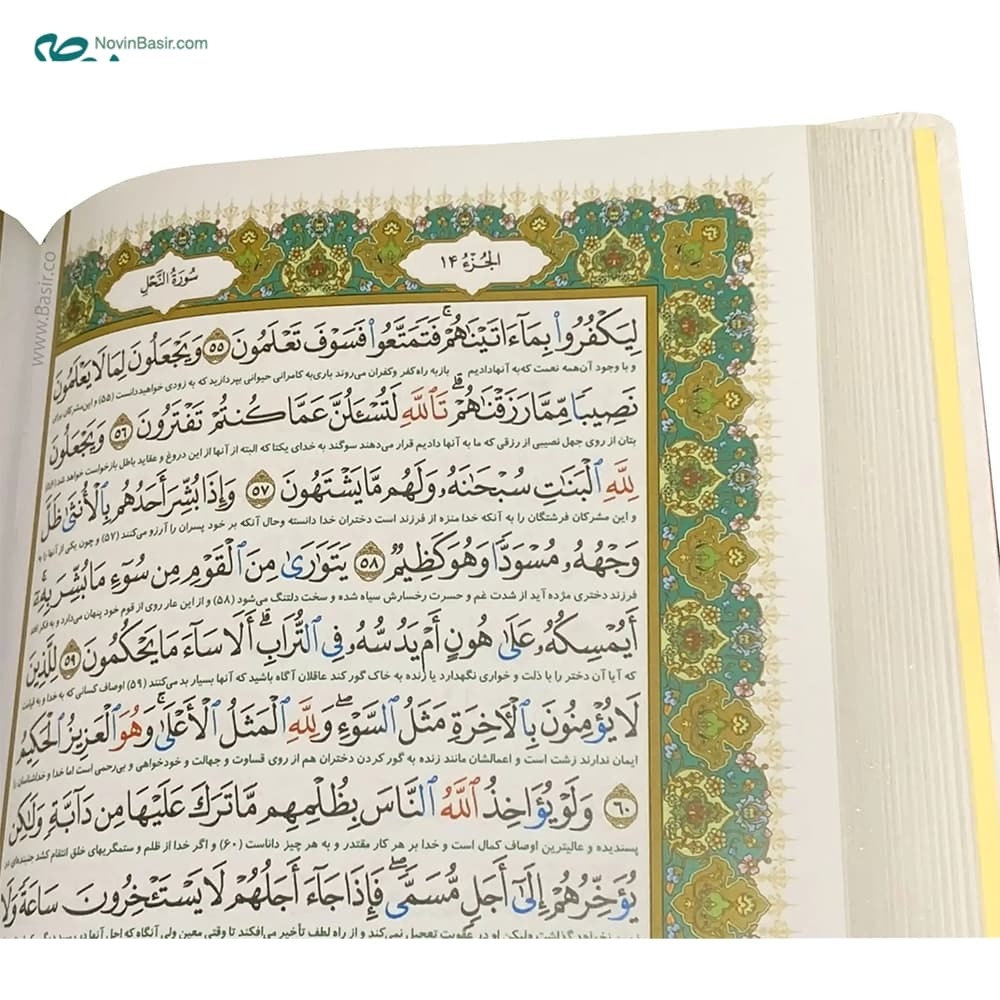 NovinBasir.com
www.Basir.co
سُورَةُ النَّحْلِ
الجُزْءُ ۱۴
لِيَكْفُرُوا۟ بِمَآ ءَاتَيْنَـٰهُمْ ۚ فَتَمَتَّعُوا۟ فَسَوْفَ تَعْلَمُونَ ۵۵ وَيَجْعَلُونَ لِمَا لَا يَعْلَمُونَ
و با وجود آن‌همه نعمت که به آنها دادیم باز به راه کفر و کفران می‌روند باری به کامرانی حیوانی بپردازید که به زودی خواهید دانست (۵۵) و این مشرکان برای
نَصِيبًا مِّمَّا رَزَقْنَـٰهُمْ ۗ تَٱللَّهِ لَتُسْـَٔلُنَّ عَمَّا كُنتُمْ تَفْتَرُونَ ۵۶ وَيَجْعَلُونَ
بتان از روی جهل نصیبی از رزقی که ما به آنها دادیم قرار می‌دهند سوگند به خدای یکتا که البته از آنها از این دروغ و عقاید باطل بازخواست خواهد شد (۵۶)
لِلَّهِ ٱلْبَنَـٰتِ سُبْحَـٰنَهُۥ وَلَهُم مَّا يَشْتَهُونَ ۵۷ وَإِذَا بُشِّرَ أَحَدُهُم بِٱلْأُنثَىٰ ظَلَّ
و این مشرکان فرشتگان را به آنکه خدا منزه از فرزند است دختران خدا دانسته وحال آنکه بر خود پسران را آرزو می‌کنند (۵۷) و چون یکی از آنها را به
وَجْهُهُۥ مُسْوَدًّا وَهُوَ كَظِيمٌ ۵۸ يَتَوَٰرَىٰ مِنَ ٱلْقَوْمِ مِن سُوٓءِ مَا بُشِّرَ بِهِۦٓ ۚ
فرزند دختری مژده آید از شدت غم و حسرت رخسارش سیاه شده و سخت دلتنگ می‌شود (۵۸) و از این عار روی از قوم خود پنهان می‌دارد و به فکر افتد
أَيُمْسِكُهُۥ عَلَىٰ هُونٍ أَمْ يَدُسُّهُۥ فِى ٱلتُّرَابِ ۗ أَلَا سَآءَ مَا يَحْكُمُونَ ۵۹ لِلَّذِينَ
که آیا آن دختر را با ذلت و خواری نگهدارد یا زنده به خاک گور کند عاقلان آگاه باشید که آنها بسیار بد می‌کنند (۵۹) اوصاف کسانی که به خدا و به قیامت
لَا يُؤْمِنُونَ بِٱلْـَٔاخِرَةِ مَثَلُ ٱلسَّوْءِ ۖ وَلِلَّهِ ٱلْمَثَلُ ٱلْأَعْلَىٰ ۚ وَهُوَ ٱلْعَزِيزُ ٱلْحَكِيمُ
ایمان ندارند زشت است و اعمالشان مانند زنده به گور کردن دختران هم از روی قساوت و جهالت و خودخواهی و بی‌رحمی است اما خدا و خداشناسان را
۶۰ وَلَوْ يُؤَاخِذُ ٱللَّهُ ٱلنَّاسَ بِظُلْمِهِم مَّا تَرَكَ عَلَيْهَا مِن دَآبَّةٍ وَلَـٰكِن
پسندیده و عالیترین اوصاف کمال است و خدا بر هر کار مقتدر و به هر چیز داناست (۶۰) و اگر خدا از ظلم و ستمگریهای خلق انتقام کشد جنبنده‌ای در
يُؤَخِّرُهُمْ إِلَىٰٓ أَجَلٍ مُّسَمًّى ۖ فَإِذَا جَآءَ أَجَلُهُمْ لَا يَسْتَـْٔخِرُونَ سَاعَةً ۖ وَلَا
نخواهد گذاشت ولیکن او در عقوبت تعجیل نمی‌کند و از راه لطف تأخیر می‌افکند تا وقتی معین ولی آنگاه که اجل آنها در رسد